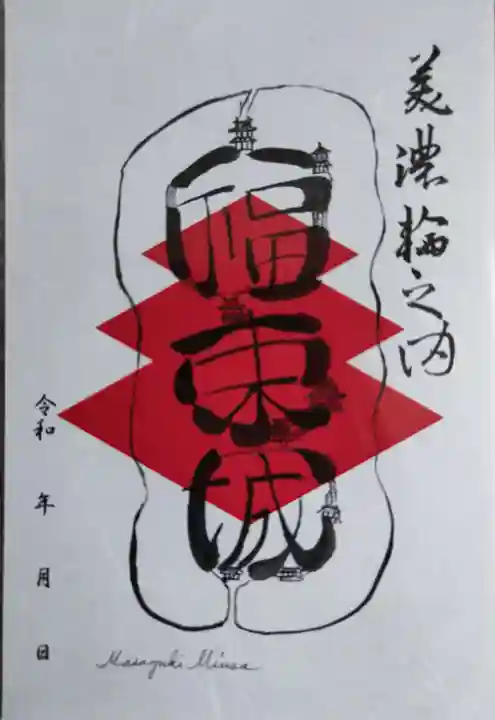 美濃輪之内
福
束
城
令和　年　月　日
Masayuki Miura